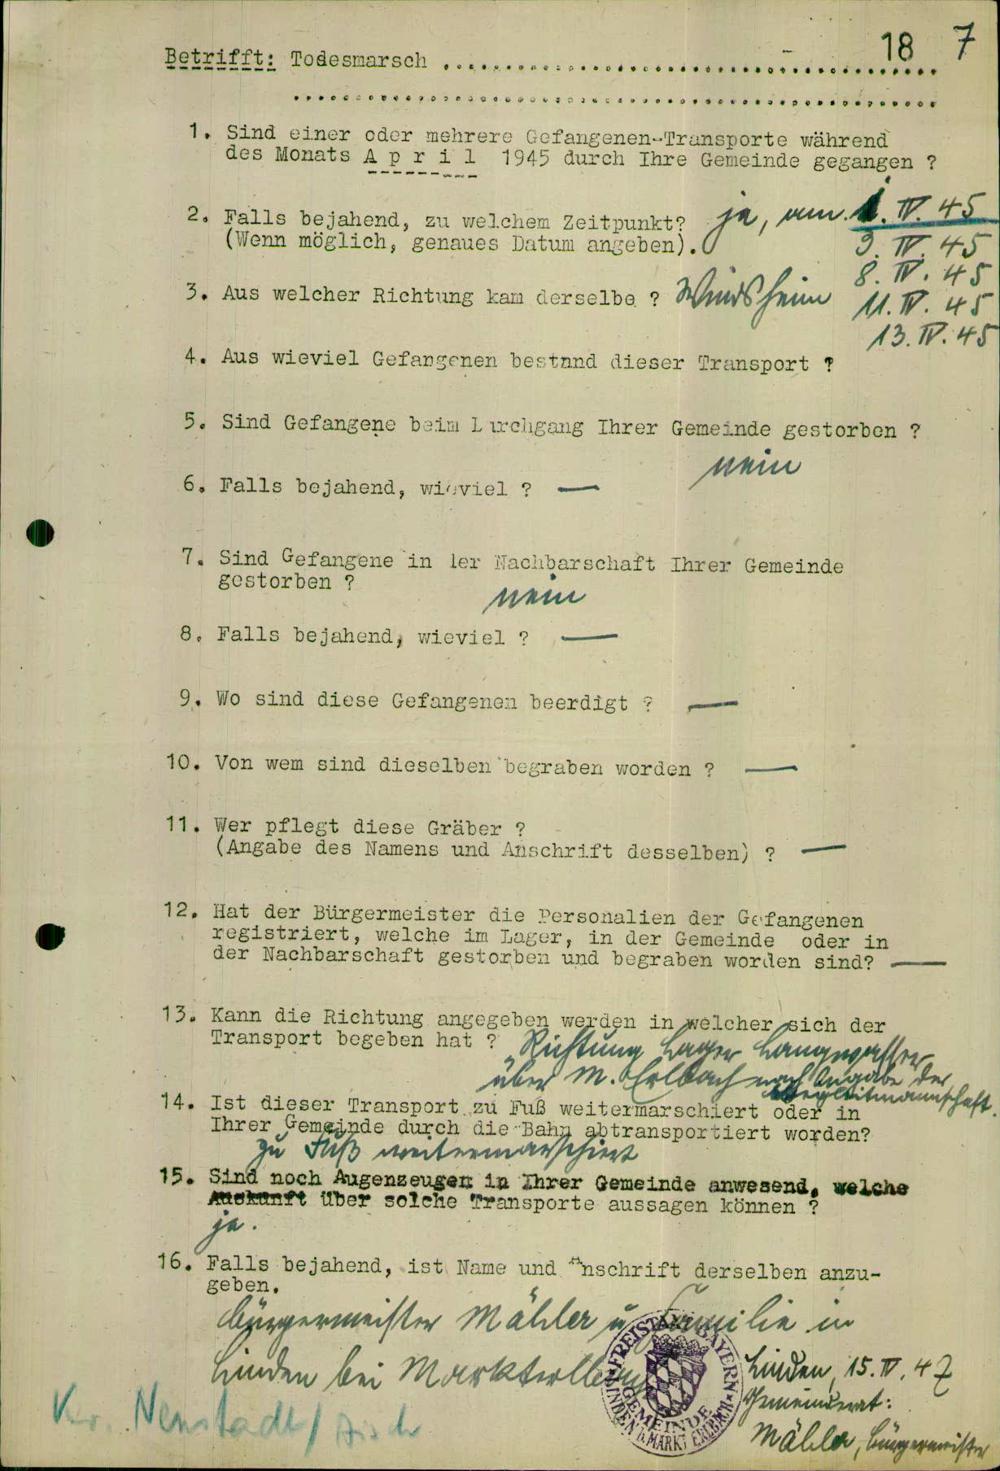 18 7
Betrifft: Todesmarsch ........................................
........................................................
1. Sind einer oder mehrere Gefangenen-Transporte während
des Monats A p r i l 1945 durch Ihre Gemeinde gegangen ?
2. Falls bejahend, zu welchem Zeitpunkt? ja, am 1. IV. 45
(Wenn möglich, genaues Datum angeben). 3. IV. 45
8. IV. 45
3. Aus welcher Richtung kam derselbe ? Windsheim 11. IV. 45
13. IV. 45
4. Aus wieviel Gefangenen bestand dieser Transport ?
5. Sind Gefangene beim Durchgang Ihrer Gemeinde gestorben ?
nein
6. Falls bejahend, wieviel ? —
7. Sind Gefangene in der Nachbarschaft Ihrer Gemeinde
gestorben ? nein
8. Falls bejahend, wieviel ? —
9. Wo sind diese Gefangenen beerdigt ? —
10. Von wem sind dieselben begraben worden ? —
11. Wer pflegt diese Gräber ?
(Angabe des Namens und Anschrift desselben) ? —
12. Hat der Bürgermeister die Personalien der Gefangenen
registriert, welche im Lager, in der Gemeinde oder in
der Nachbarschaft gestorben und begraben worden sind? —
13. Kann die Richtung angegeben werden in welcher sich der
Transport begeben hat ? Richtung Lager Langwasser
über M. Erlbach nach Angabe der
Begleitmannschaft.
14. Ist dieser Transport zu Fuß weitermarschiert oder in
Ihrer Gemeinde durch die Bahn abtransportiert worden?
zu Fuß weitermarschiert
15. Sind noch Augenzeugen in Ihrer Gemeinde anwesend, welche
Auskunft über solche Transporte aussagen können ?
ja.
16. Falls bejahend, ist Name und Anschrift derselben anzu-
geben.
Bürgermeister u. Familie in
Linden bei Markterlbach
FREISTAAT BAYERN
GEMEINDE
LINDEN b. MARKT ERLBACH
Linden, 15. IV. 47
Gemeinderat:
Bürgermeister
Kr. Neustadt / Aisch